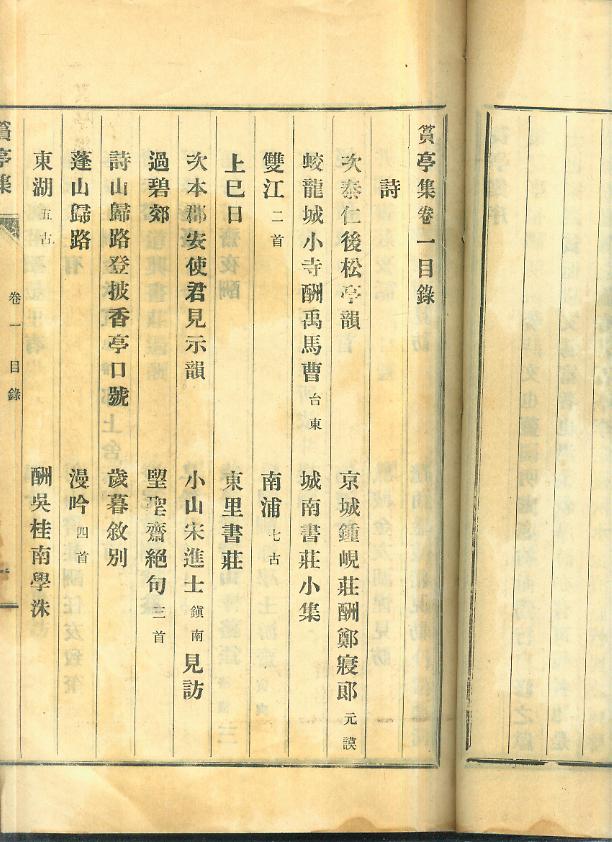 篔亭集卷一目錄
詩
次泰仁後松亭韻 京城鍾峴莊酬鄭寢郎元謨
蛟龍城小寺酬禹馬曹台東 城南書莊小集
雙江二首 南浦七古
上巳日 東里書莊
次本郡安使君見示韻 小山宋進士鎭南見訪
過碧郊 望聖齋絕句三首
詩山歸路登披香亭口號 歲暮敘別
蓬山歸路 漫吟四首
東湖五古 酬吳桂南學洙
篔亭集
卷一 目錄